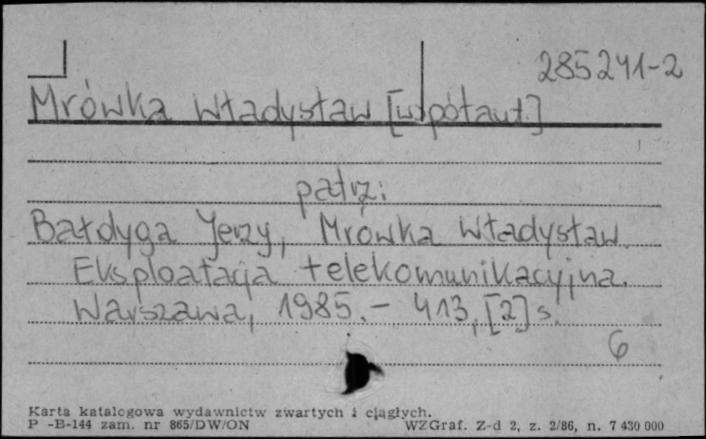 285241-2
Mrówka Władysław [współaut.]
patrz:
Bałdyga Jerzy, Mrówka Władysław.
Eksploatacja telekomunikacyjna.
Warszawa, 1985. - 413, [2] s.
6
Karta katalogowa wydawnictw zwartych i ciągłych.
P -B-144 zam. nr 865/DW/ON WZGraf. Z-d 2, z. 2/86, n. 7 430 000